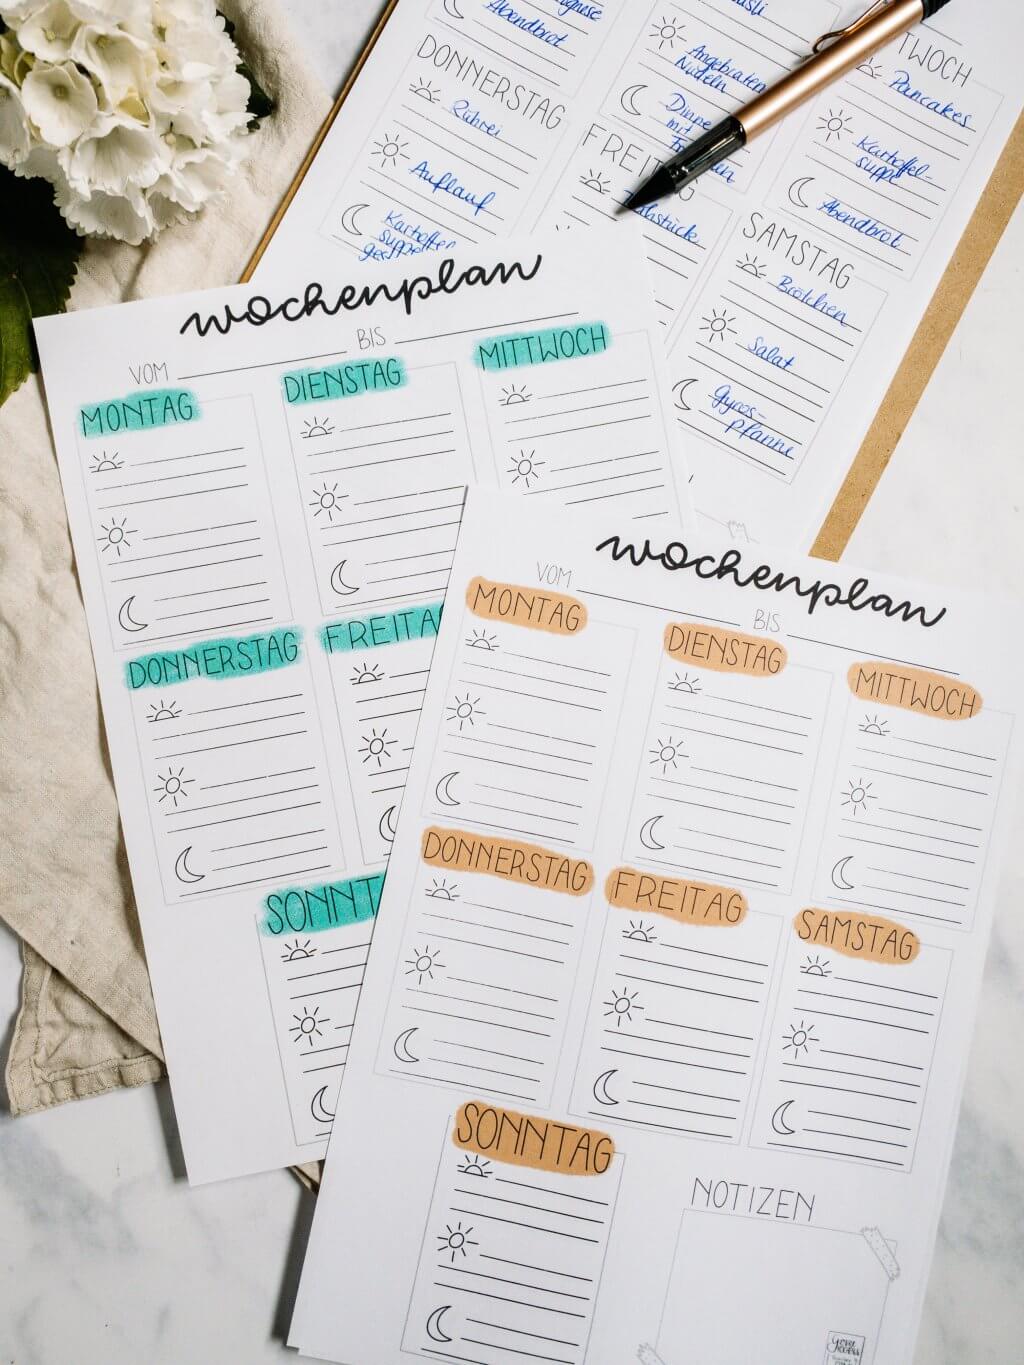 Abendbrot
DONNERSTAG
Rührei
Auflauf
Kartoffel
suppe
Angebraten
Nudeln
mit
FREITAG
TWOCH
Pancakes
Kartoffel-
suppe
Abendbrot
SAMSTAG
Brötchen
Salat
Gyros-
pfanne
wochenplan
VOM
BIS
MONTAG
DIENSTAG
MITTWOCH
DONNERSTAG
FREITA
SONNT
wochenplan
VOM
BIS
MONTAG
DIENSTAG
MITTWOCH
DONNERSTAG
FREITAG
SAMSTAG
SONNTAG
NOTIZEN